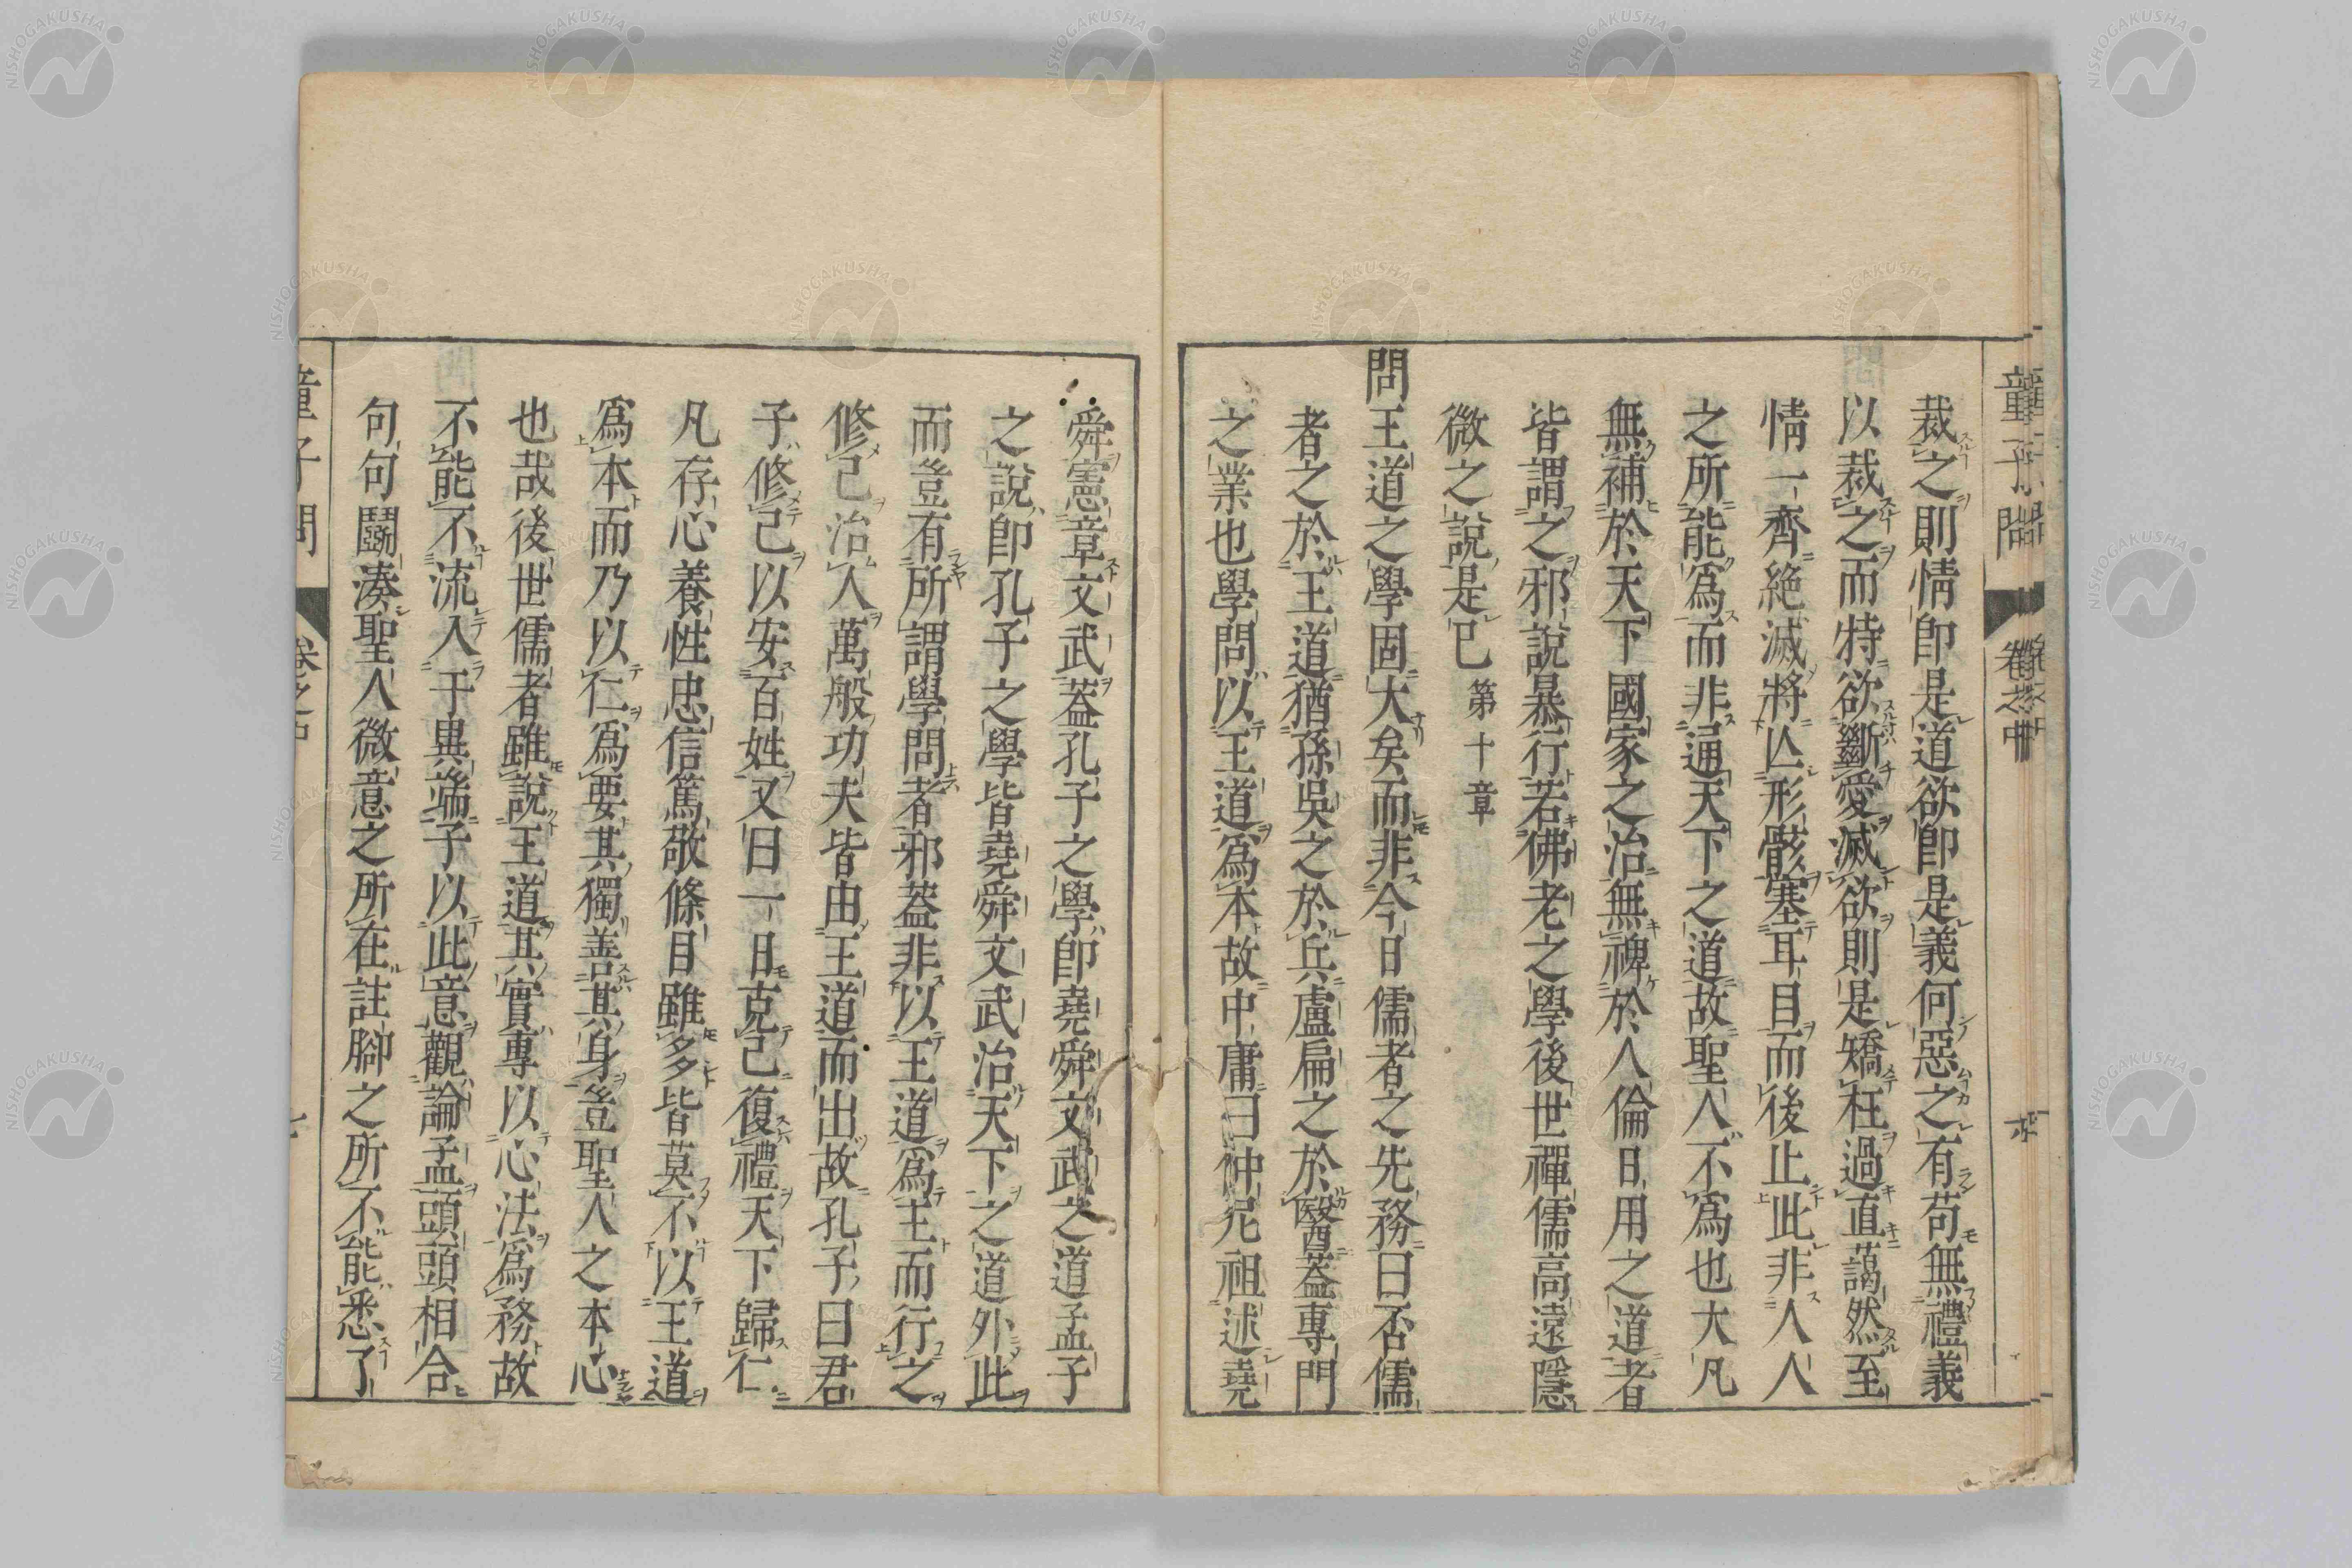 童子問 卷之中
裁之則情卽是道欲卽是義何惡之有苟無禮義
以裁之而特欲斷愛滅欲則是矯枉過直藹然至
情一齊絶滅將亾形骸塞耳目而後止此非人人
之所能爲而非通天下之道故聖人不爲也大凡
無補於天下國家之治無裨於人倫日用之道者
皆謂之邪說暴行若佛老之學後世禪儒高遠隱
微之說是已 第十章
問王道之學固大矣而非今日儒者之先務曰否儒
者之於王道猶孫吳之於兵盧扁之於醫蓋專門
之業也學問以王道爲本故中庸曰仲尼祖述堯
舜憲章文武蓋孔子之學卽堯舜文武之道孟子
之說卽孔子之學皆堯舜文武治天下之道外此
而豈有所謂學問者邪蓋非以王道爲主而行之
修己治人萬般功夫皆由王道而出故孔子曰君
子修己以安百姓又曰一日克己復禮天下歸仁
凡存心養性忠信篤敬條目雖多皆莫不以王道
爲本而乃以仁爲要其獨善其身豈聖人之本心
也哉後世儒者雖說王道其實專以心法爲務故
不能不流入于異端子以此意觀論孟頭頭相合
句句鬭湊聖人微意之所在註腳之所不能悉了
童子問 卷之中